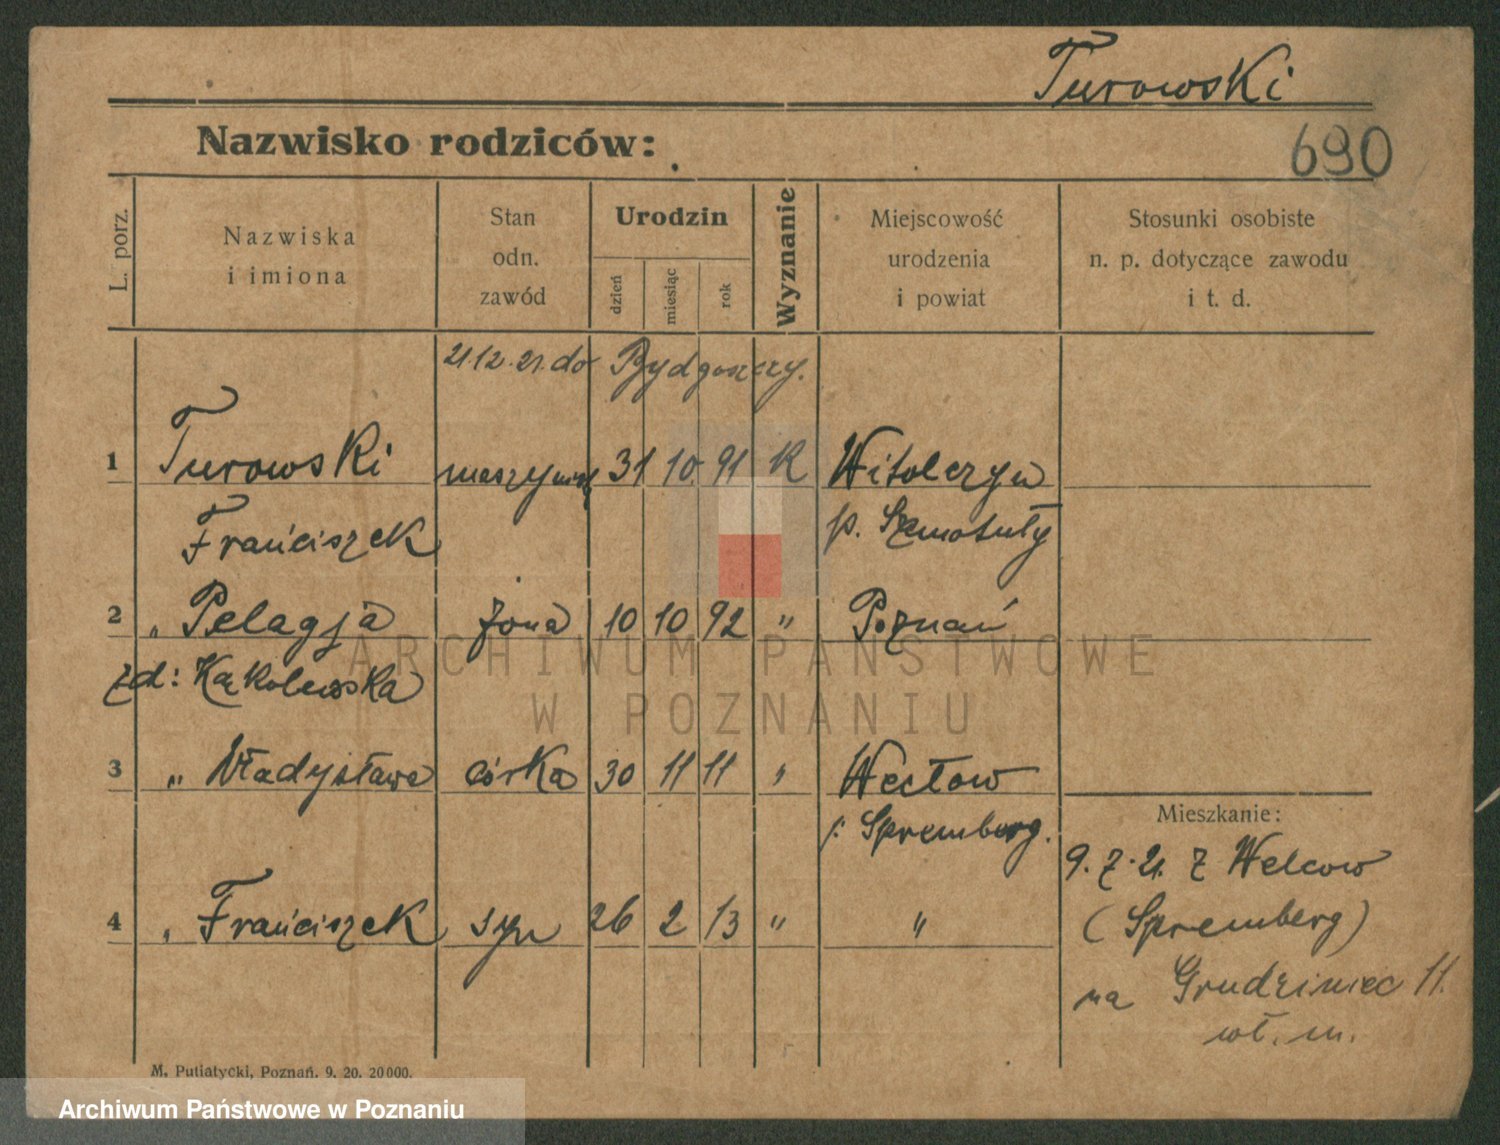 Turowski
690
Nazwisko rodziców:
L. porz.
Nazwiska
i imiona
Stan
odn.
zawód
Urodzin
dzień
miesiąc
rok
Wyznanie
Miejscowość
urodzenia
i powiat
Stosunki osobiste
n. p. dotyczące zawodu
i t. d.
21.12.21. do Bydgoszczy.
1 Turowski 31 10 91 K Witolczyn
Franciszek p. Szamotuły
2 „ Pelagja żona 10 10 92 „ Poznań
zd: Kąkolewska
3 „ Władysława córka 30 11 11 „ Wectow
p: Spremberg.
4 „ Franciszek syn 26 2 13 „ „
Mieszkanie:
9. 7. 21. z Welcow
(Spremberg)
na Grudziniec 11.
wł. m.
M. Putiatycki, Poznań. 9. 20. 20000.
ARCHIWUM PAŃSTWOWE
W POZNANIU
Archiwum Państwowe w Poznaniu